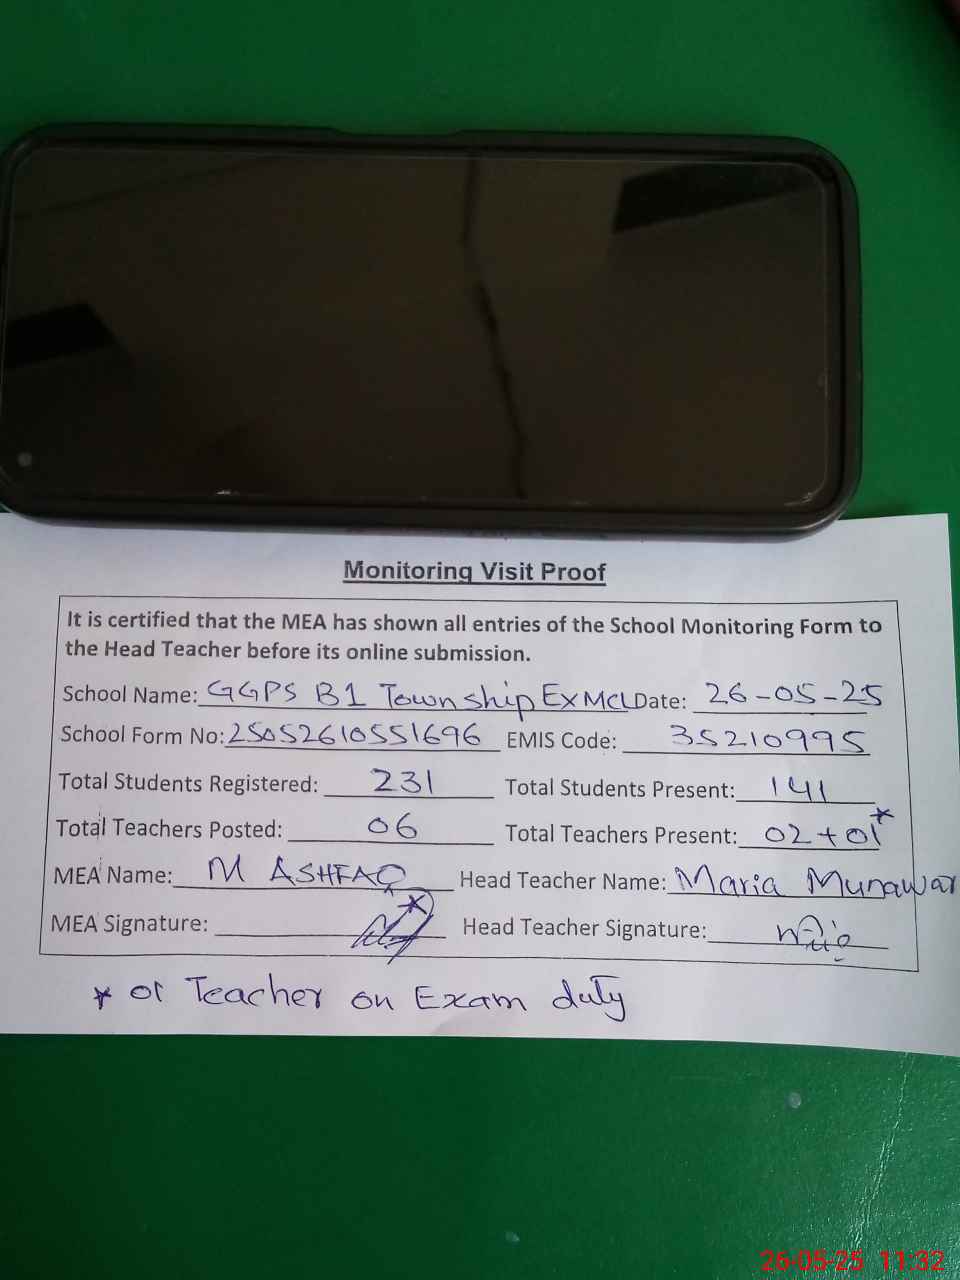 Monitoring Visit Proof
It is certified that the MEA has shown all entries of the School Monitoring Form to
the Head Teacher before its online submission.
School Name: GGPS B1 Township Ex MCL Date: 26-05-25
School Form No: 25052610551696 EMIS Code: 35210995
Total Students Registered: 231 Total Students Present: 141
Total Teachers Posted: 06 Total Teachers Present: 02+01*
MEA Name: M ASHFAQ Head Teacher Name: Maria Munawar
MEA Signature: Head Teacher Signature:
* 01 Teacher on Exam duty
26-05-25 11:32